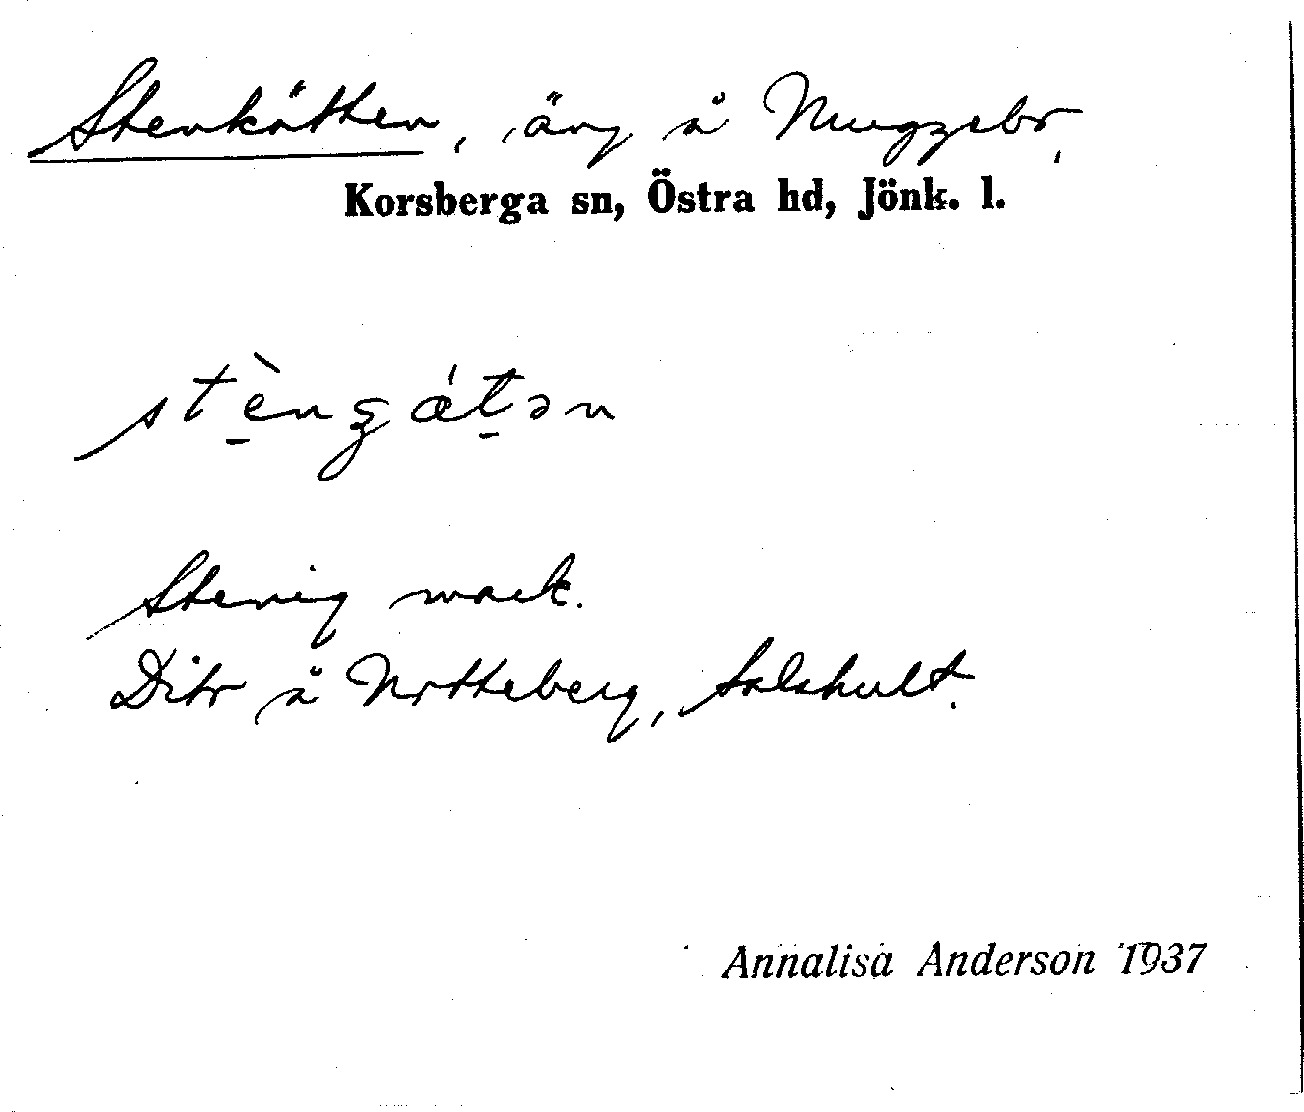 Stenkätten, äng å Muggebo,
Korsberga sn, Östra hd, Jönk. l.
Stenig mark.
Dito å Notteberg, Salshult.
Annalisa Anderson 1937